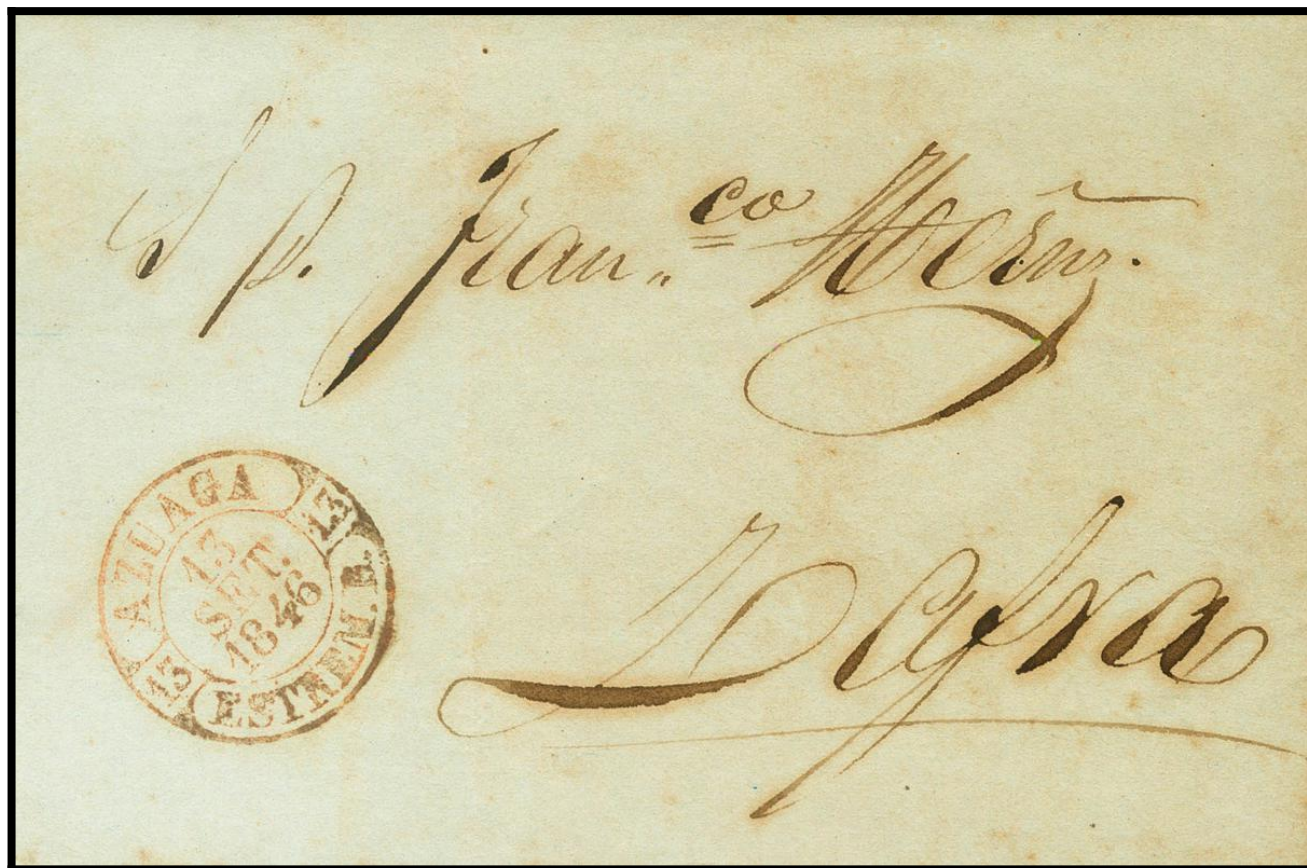 S D. Fran.co
Zafra
AZUAGA
13
13
SET.
1846
13
ESTREM. B.